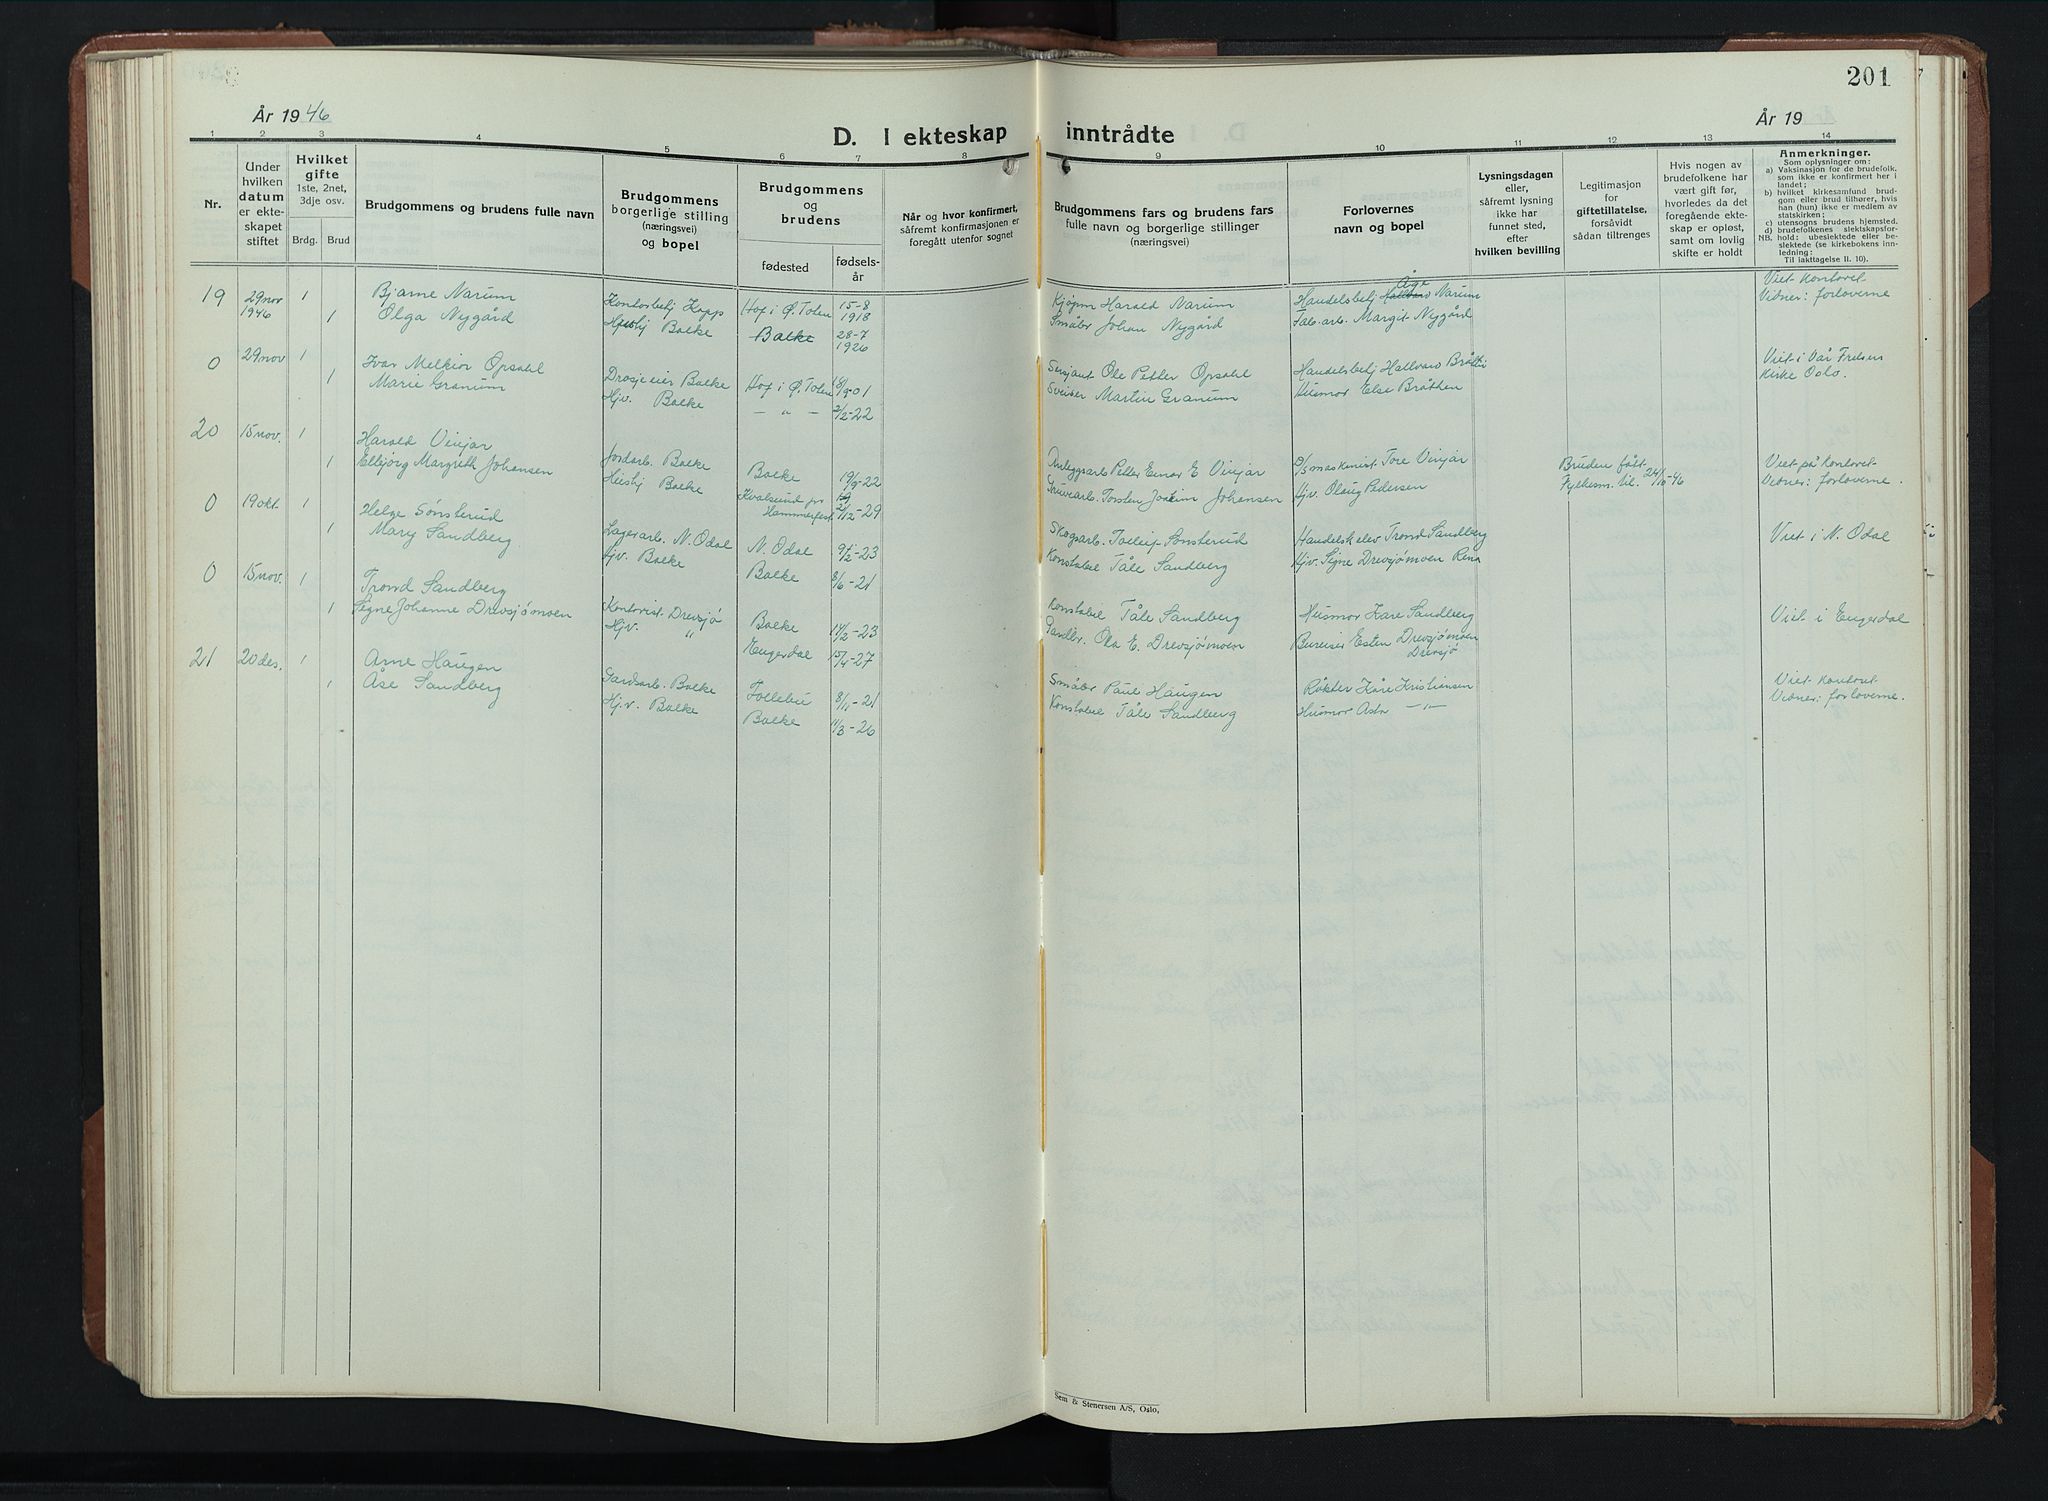 201
År 1946
År 19
D. I ekteskap inntrådte
1 2 3 4 5 6 7 8 9 10 11 12 13 14
Nr.
Under hvilken datum er ekteskapet stiftet
Hvilket gifte 1ste, 2net, 3dje osv.
Brdg. Brud
Brudgommens og brudens fulle navn
Brudgommens borgerlige stilling (næringsvei) og bopel
Brudgommens og brudens
fødested
fødselsår
Når og hvor konfirmert, såfremt konfirmasjonen er foregått utenfor sognet
Brudgommens fars og brudens fars fulle navn og borgerlige stillinger (næringsvei)
Forlovernes navn og bopel
Lysningsdagen eller, såfremt lysning ikke har funnet sted, efter hvilken bevilling
Legitimasjon for giftetillatelse, forsåvidt sådan tiltrenges
Hvis nogen av brudefolkene har vært gift før, hvorledes da det foregående ekteskap er opløst, samt om lovlig skifte er holdt
Anmerkninger.
Som oplysninger om:
a) Vaksinasjon for de brudefolk. som ikke er konfirmert her i landet;
b) hvilket kirkesamfund brudgom eller brud tilhører, hvis han (hun) ikke er medlem av statskirken;
c) utensogns brudens hjemsted.
d) brudefolkenes slektskapsforhold: ubeslektede eller beslektede (se kirkebokens innledning:
NB. Til iakttagelse II. 10).
19 29 nov 1946 1 Bjarne Narum Kontorbetj Kapp Hof i Ø. Toten 15-8 1918 Kjøpm Harald Narum Handelsbetj Åge Narum Viet kontoret
1 Olga Nygård Hushj Bølke Balke 28-7 1926 Småbr Johan Nygård Fab.arb. Margit Nygård Vidner: forloverne
0 29 nov 1 Ivar Melkior Opsahl Drosjeeier Balke Hof i Ø. Toten 01 Sersjant Ole Petter Opsahl Handelsbetj Hallvard Bråten Viet i Vår Frelsers
1 Marie Granum Hjv. Balke — " — 2/2-22 Sveiser Martin Granum Husmor Else Bråthen Kirke Oslo.
20 15 nov. 1 Harald Vinjar Jordarb. Balke Balke 19/9-22 Anleggsarb Petter Einar E Vinjar D/S maskinist Tore Vinjar Bruden fått Viet på kontoret
1 Ellbjørg Margreth Johansen Hushj Balke Kvalsund pr Hammerfest 2/12-29 Gruvearb. Torsten Joakim Johansen Hjv. Olaug Pedersen Fylkesm. til. 24/10-46 Vidner: forloverne.
0 19 okt 1 Helge Sønsterud Lagerarb. N. Odal N. Odal 9/2-23 Skogsarb. Tolleif Sønsterud Handelselev Trond Sandberg Viet i N. Odal
1 Mary Sandberg. Hjv. Balke Balke 8/6-21 Konstabel Tåle Sandberg Hjv. Signe Drevsjømoen Rena
0 15 nov. 1 Trond Sandberg Kontorist Drevsjø Balke 14/2-23 Konstabel Tåle Sandberg Husmor Kare Sandberg Viet i Engerdal
1 Signe Johanne Drevsjømoen Hjv. " Engerdal 15/4-27 Gardbr. Ola E. Drevsjømoen Bureiser Esten Drevsjømoen Drevsjø
21 20 des. 1 Arne Haugen Gardsarb. Balke Follebu 8/11-21 Småbr Paul Haugen Røkter Kåre Kristiansen Viet kontoret
1 Åse Sandberg Hj.v. Balke Balke 11/3-26 Konstabel Tåle Sandberg Husmor Asta — " — Vidner: forloverne.
Sem & Stenersen A/S, Oslo.